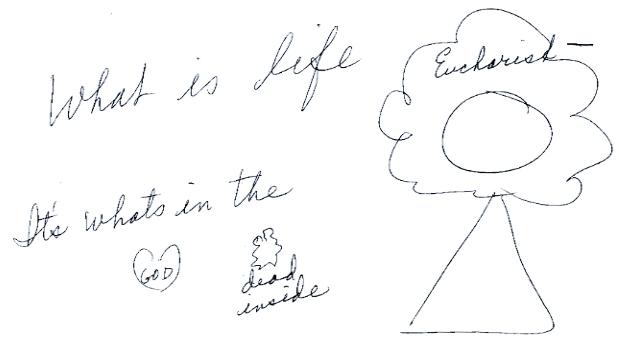 What is life
Eucharist —
It's whats in the
GOD
dead
inside